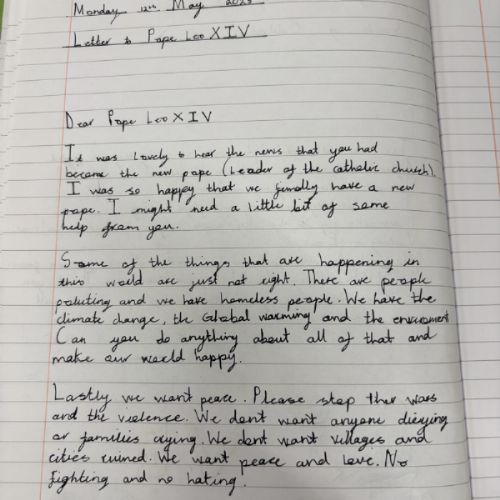 Monday 12th May 2025
Letter to Pope Leo XIV
Dear Pope Leo XIV
It was lovely to hear the news that you had
became the new pope (Leader of the catholic church).
I was so happy that we finally have a new
pope. I might need a little bit of some
help from you.
Some of the things that are happening in
this world are just not right. There are people
poluting and we have homeless people. We have the
climate change, the Global warming and the enviroment
Can you do anything about all of that and
make our world happy.
Lastly we want peace. Please stop ther wars
and the violence. We dont want anyone dieying
or families crying. We dont want villages and
cities ruined. We want peace and love. No
fighting and no hating.